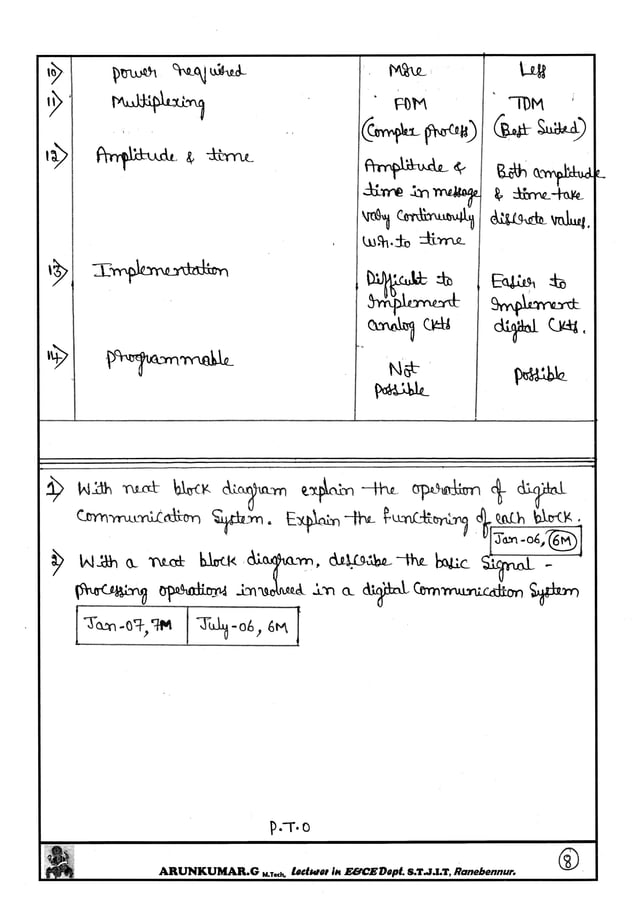 10) Power required More Less
11) Multiplexing FDM TDM
(Complex process) (Best Suited)
12) Amplitude & time Amplitude & Both amplitude
time in message & time take
vary continuously discrete values.
w.r.to time
13) Implementation Difficult to Easier to
Implement Implement
analog CKts digital CKts.
14) Programmable Not Possible
Possible
1) With neat block diagram explain the operation of digital
Communication System. Explain the functioning of each block.
Jan-06, 6M
2) With a neat block diagram, describe the basic Signal -
processing operations involved in a digital Communication System
Jan-07, 7M July-06, 6M
P.T.O
ARUNKUMAR.G M.Tech, Lecturer in E&CE Dept. S.T.J.I.T, Ranebennur.
8